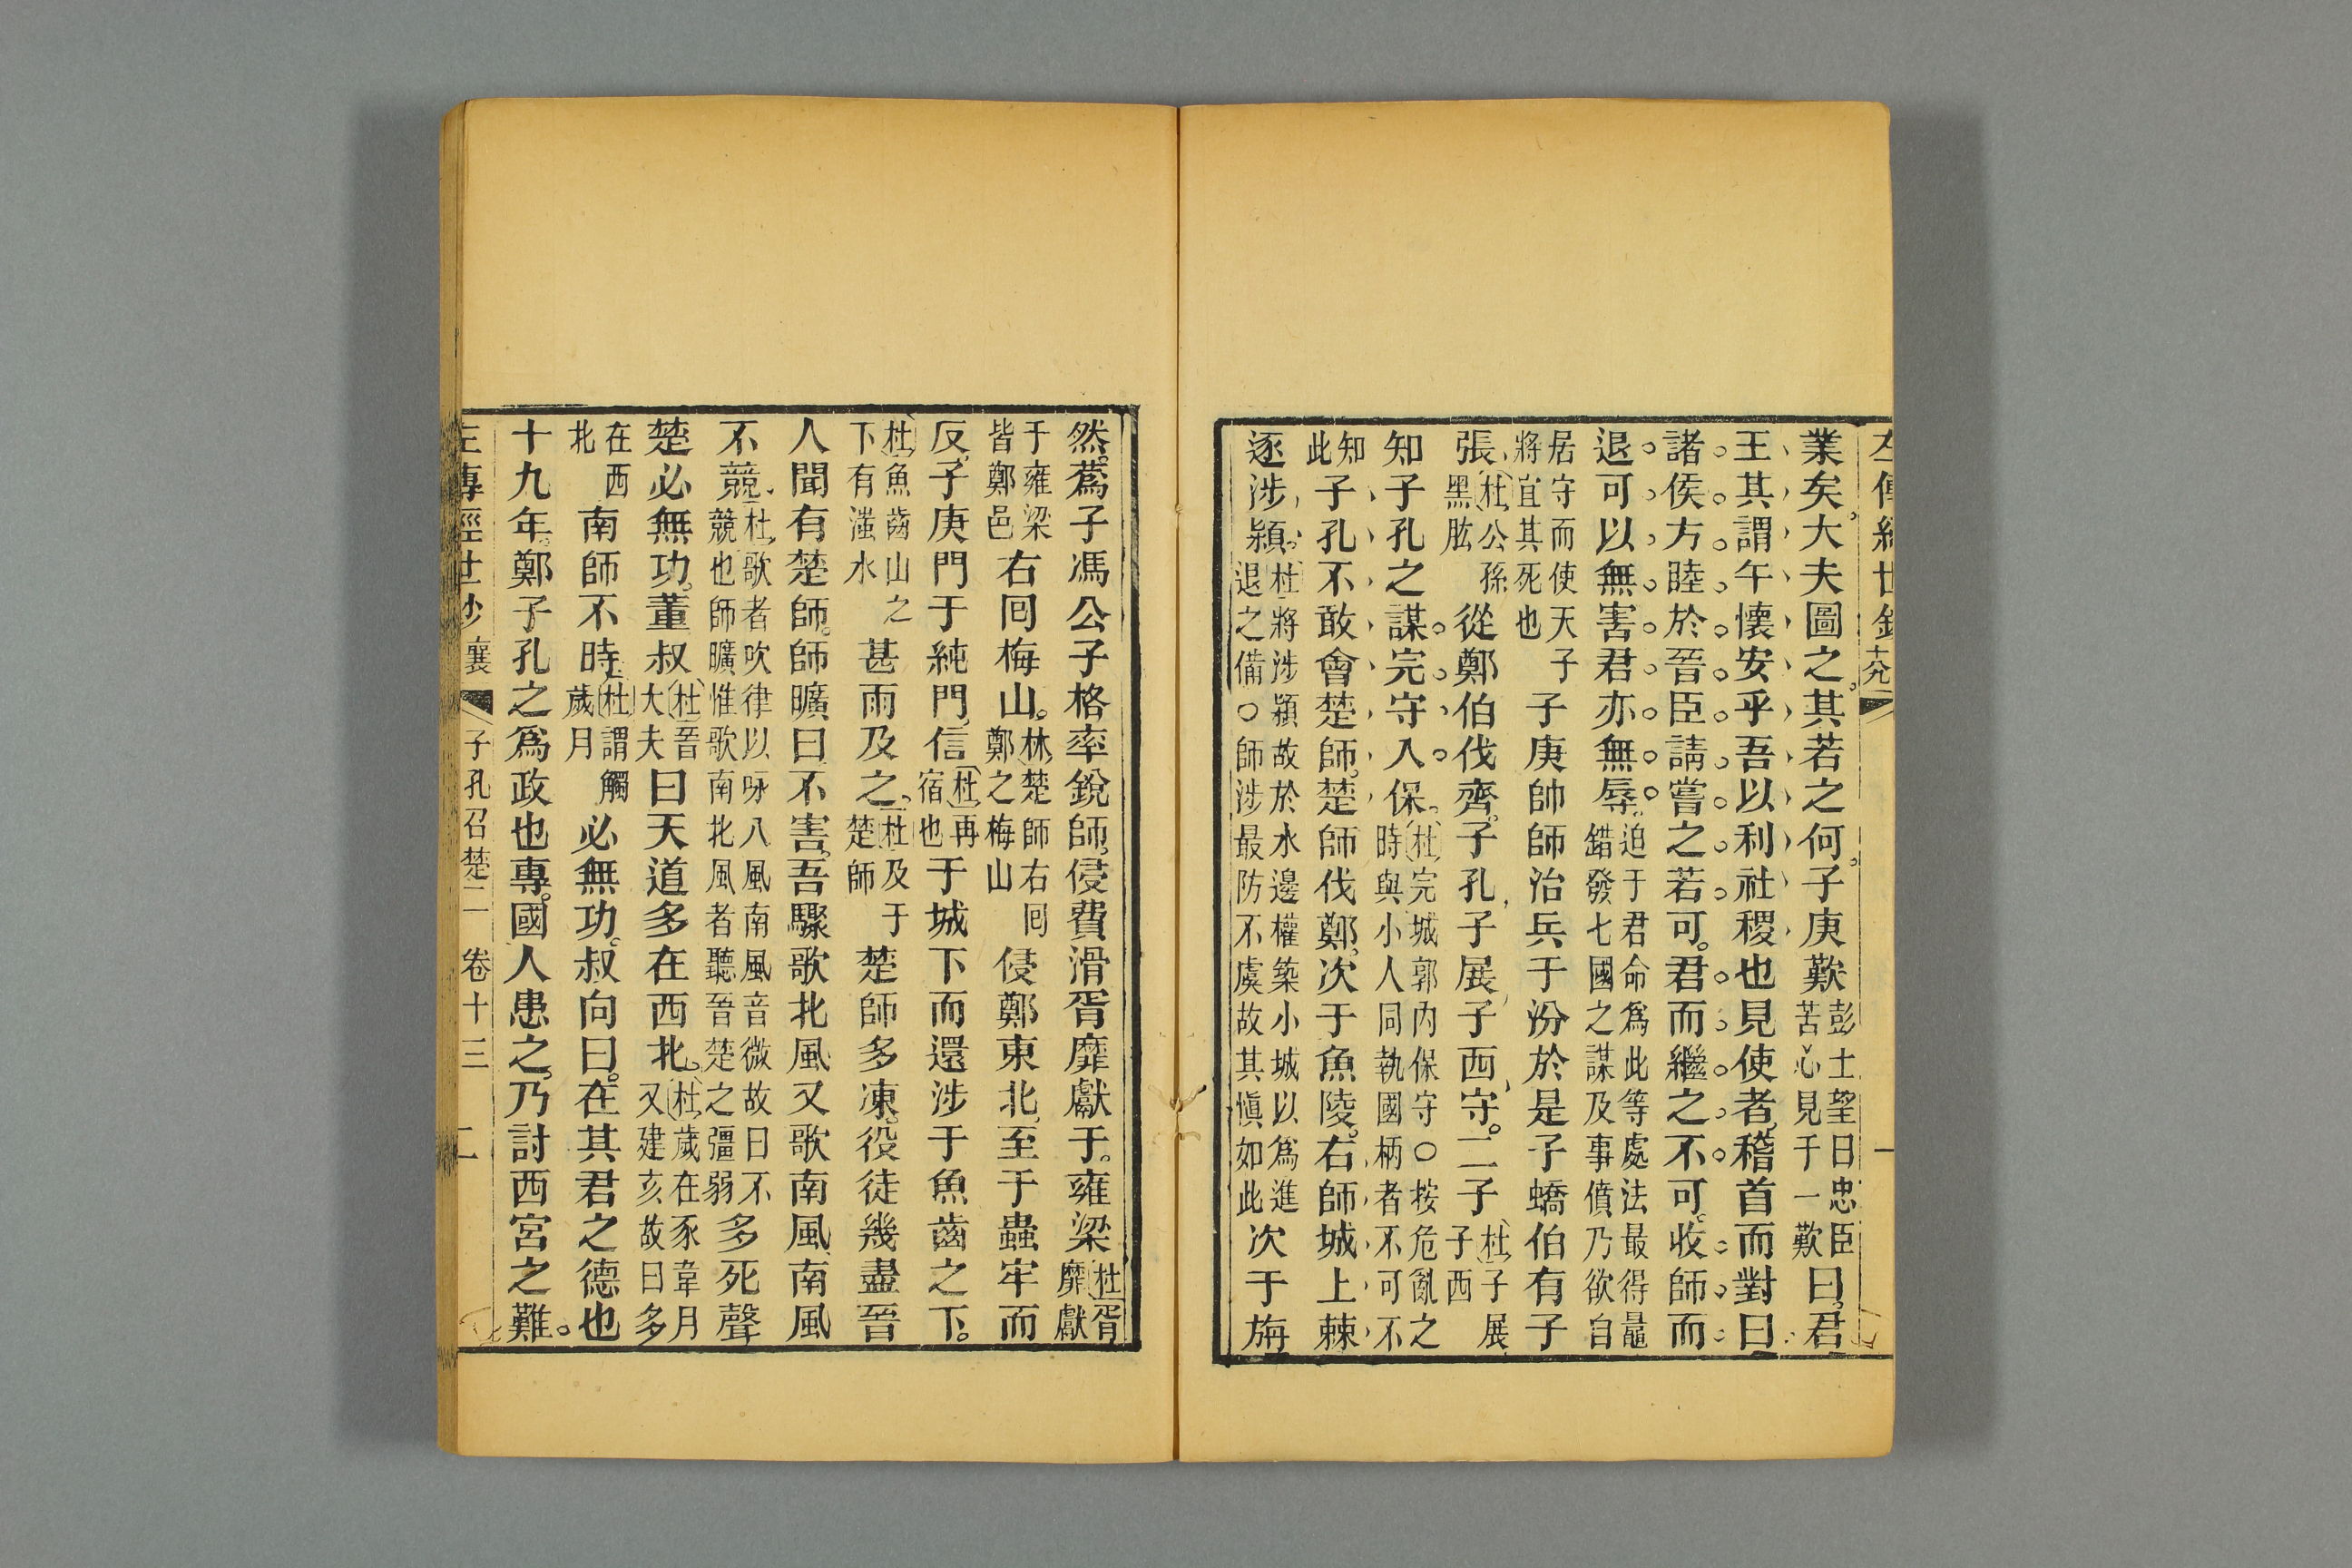 業矣大夫圖之其若之何子庚歎彭士望曰忠臣苦心見于一歎曰君
王其謂午懷安乎吾以利社稷也見使者稽首而對曰
諸侯方睦於晉臣請嘗之若可君而繼之不可收師而
退可以無害君亦無辱迫于君命爲此等處法最得鼂錯發七國之謀及事僨乃欲自
居守而使天子將宜其死也子庚帥師治兵于汾於是子蟜伯有子
張杜公孫黑肱從鄭伯伐齊子孔子展子西守二子杜子展子西
知子孔之謀完守入保杜完城郭內保守○按危亂之時與小人同執國柄者不可不
知此子孔不敢會楚師楚師伐鄭次于魚陵右師城上棘
逐涉潁杜將涉潁故於水邊權築小城以爲進退之備○師涉最防不虞故其愼如此次于旃
然蔿子馮公子格率銳師侵費滑胥靡獻于雍梁杜胥靡獻
于雍梁皆鄭邑右囘梅山林楚師右囘鄭之梅山侵鄭東北至于蟲牢而
反子庚門于純門信杜再宿也于城下而還涉于魚齒之下
杜魚齒山之下有滍水甚雨及之杜及于楚師楚師多凍役徒幾盡晉
人聞有楚師師曠曰不害吾驟歌北風又歌南風南風
不競杜歌者吹律以咏八風南風音微故曰不競也師曠惟歌南北風者聽晉楚之彊弱多死聲
楚必無功董叔杜晉大夫曰天道多在西北杜歲在豕韋月又建亥故曰多
在西北南師不時杜謂觸歲月必無功叔向曰在其君之德也
十九年鄭子孔之爲政也專國人患之乃討西宮之難
左傳經世鈔 襄 子孔召楚二 卷十三 二